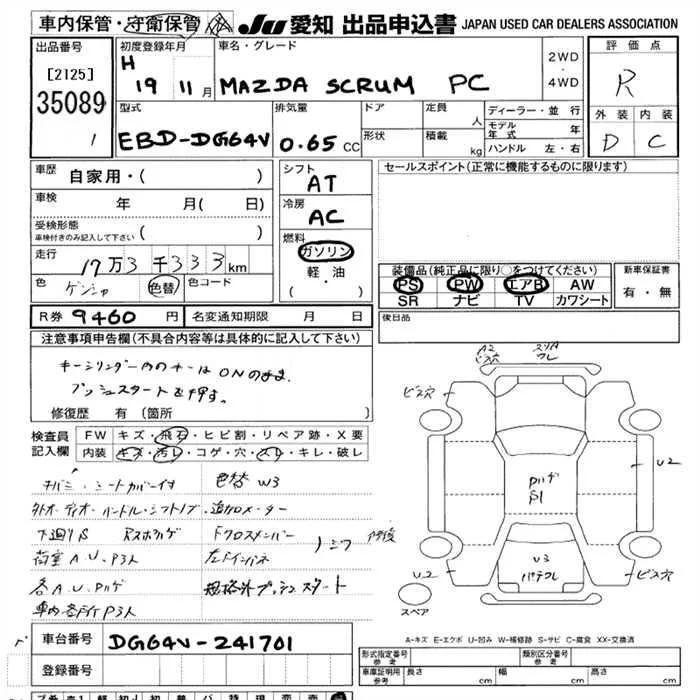 車内保管・守衛保管 JU 愛知 出品申込書 JAPAN USED CAR DEALERS ASSOCIATION
出品番号
[2125]
35089
1
初度登録年月
H 19 11月
車名・グレード
MAZDA SCRUM PC
2WD
・
4WD
評価点
R
外装 内装
D C
型式
EBD-DG64V
排気量
0.65 CC
ドア
形状
定員
人
積載
kg
ディーラー・並行
モデル年式 年
ハンドル 左・右
車歴
自家用・( )
車検
年 月( 日)
受検形態
車検付きのみ記入して下さい ( )
走行
17万3千333km
色
ゲンシャ
色替
色コード
シフト
AT
冷房
AC
燃料
ガソリン
軽・油
( ・ )
セールスポイント(正常に機能するものに限ります)
装備品(純正品に限り○をつけてください)
PS PW エアB AW
SR ナビ TV カワシート
新車保証書
有・無
R券 9460 円
名変通知期限 月 日
後日品
注意事項申告欄(不具合内容等は具体的に記入して下さい)
キーシリンダー内のキーはONのまま.
プッシュスタートを押す。
修復歴 有(箇所 )
検査員
記入欄
FW キズ・飛石・ヒビ割・リペア跡・X要
内装 キズ・汚レ・コゲ・穴・スレ・キレ・破レ
シートカバー付 色替 W3
外オーディオ・ハンドル・シフトノブ・追加メーター
下廻りS
Fクロスメンバー
荷室A.U.P3人
左Fインパネ
各A.U.
規格外プッシュスタート
車内各所P3人
A2
ビス穴
スリA
ワレ
ビス穴
U2
U3
U2
ビス穴
スペア
A-キズ E-エクボ U-凹み W-補修跡 S-サビ C-腐食 XX-交換済
車台番号 DG64V-241701
登録番号
形式指定番号
参考
類別区分番号
参考
車庫証明用
参考
長さ cm
幅 cm
高さ cm